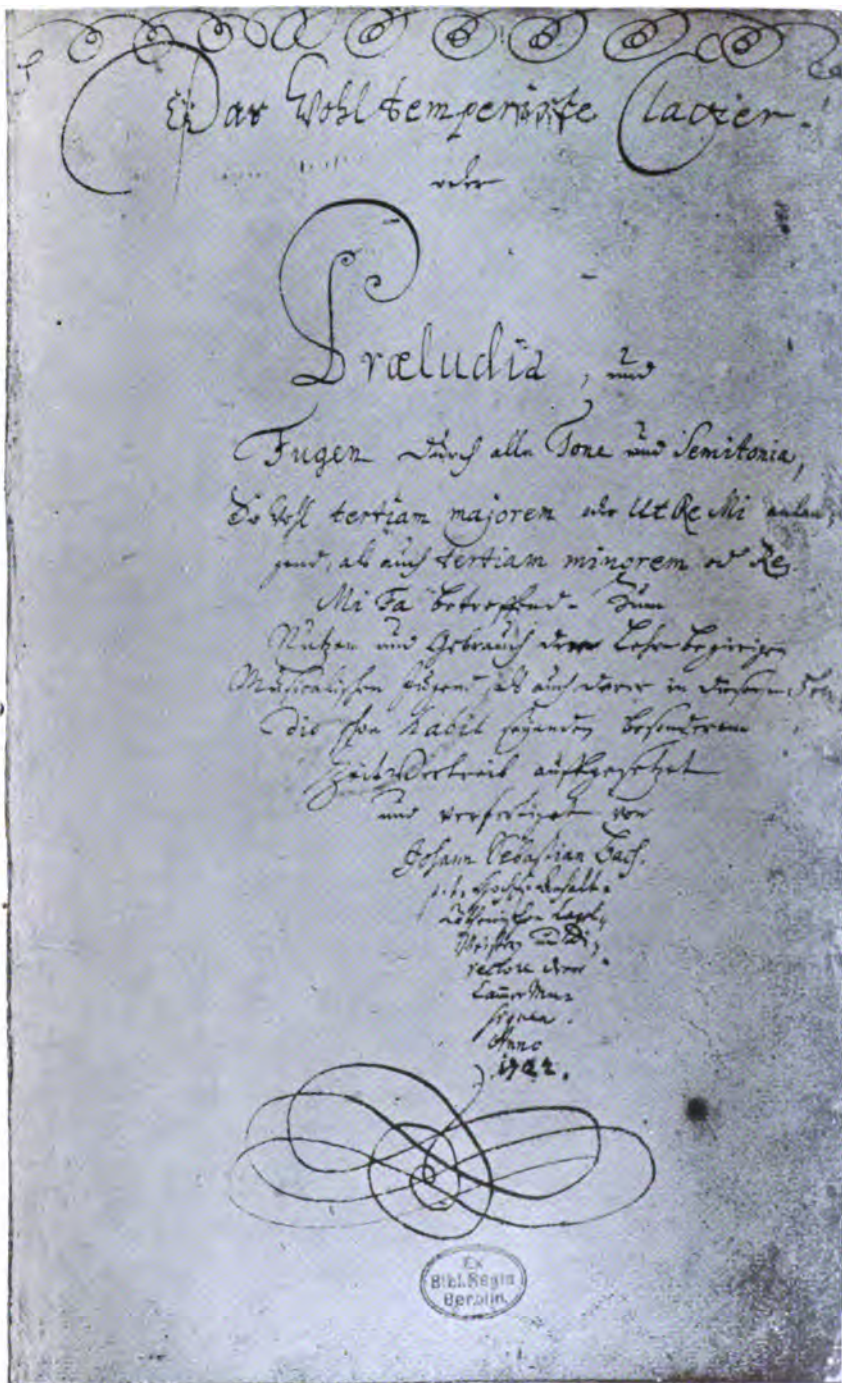 Das Wohltemperirte Clavier.
oder
Præludia, und
Fugen durch alle Tone und Semitonia,
So wohl tertiam majorem oder Ut Re Mi anlan,
gend, als auch tertiam minorem od Re
Mi Fa betreffend. Zum
Nutzen und Gebrauch der Lehr-begierigen
Musicalischen Jugend, als auch derer in diesem stu,
dio schon habil seyenden besonderem
Zeitvertreib auffgesetzet
und verfertiget von
Johann Sebastian Bach.
p. t. Hochf. Anhalt-
Cöthenischen Capel-
Meistern und Di,
rectore derer
Cam̅er Mu-
siquen.
Anno
1722.
Ex
Bibl. Regia
Berolin.